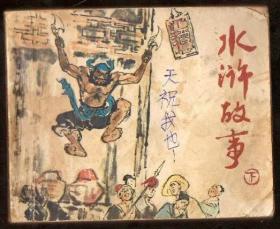 水浒故事
下
天祝我也!